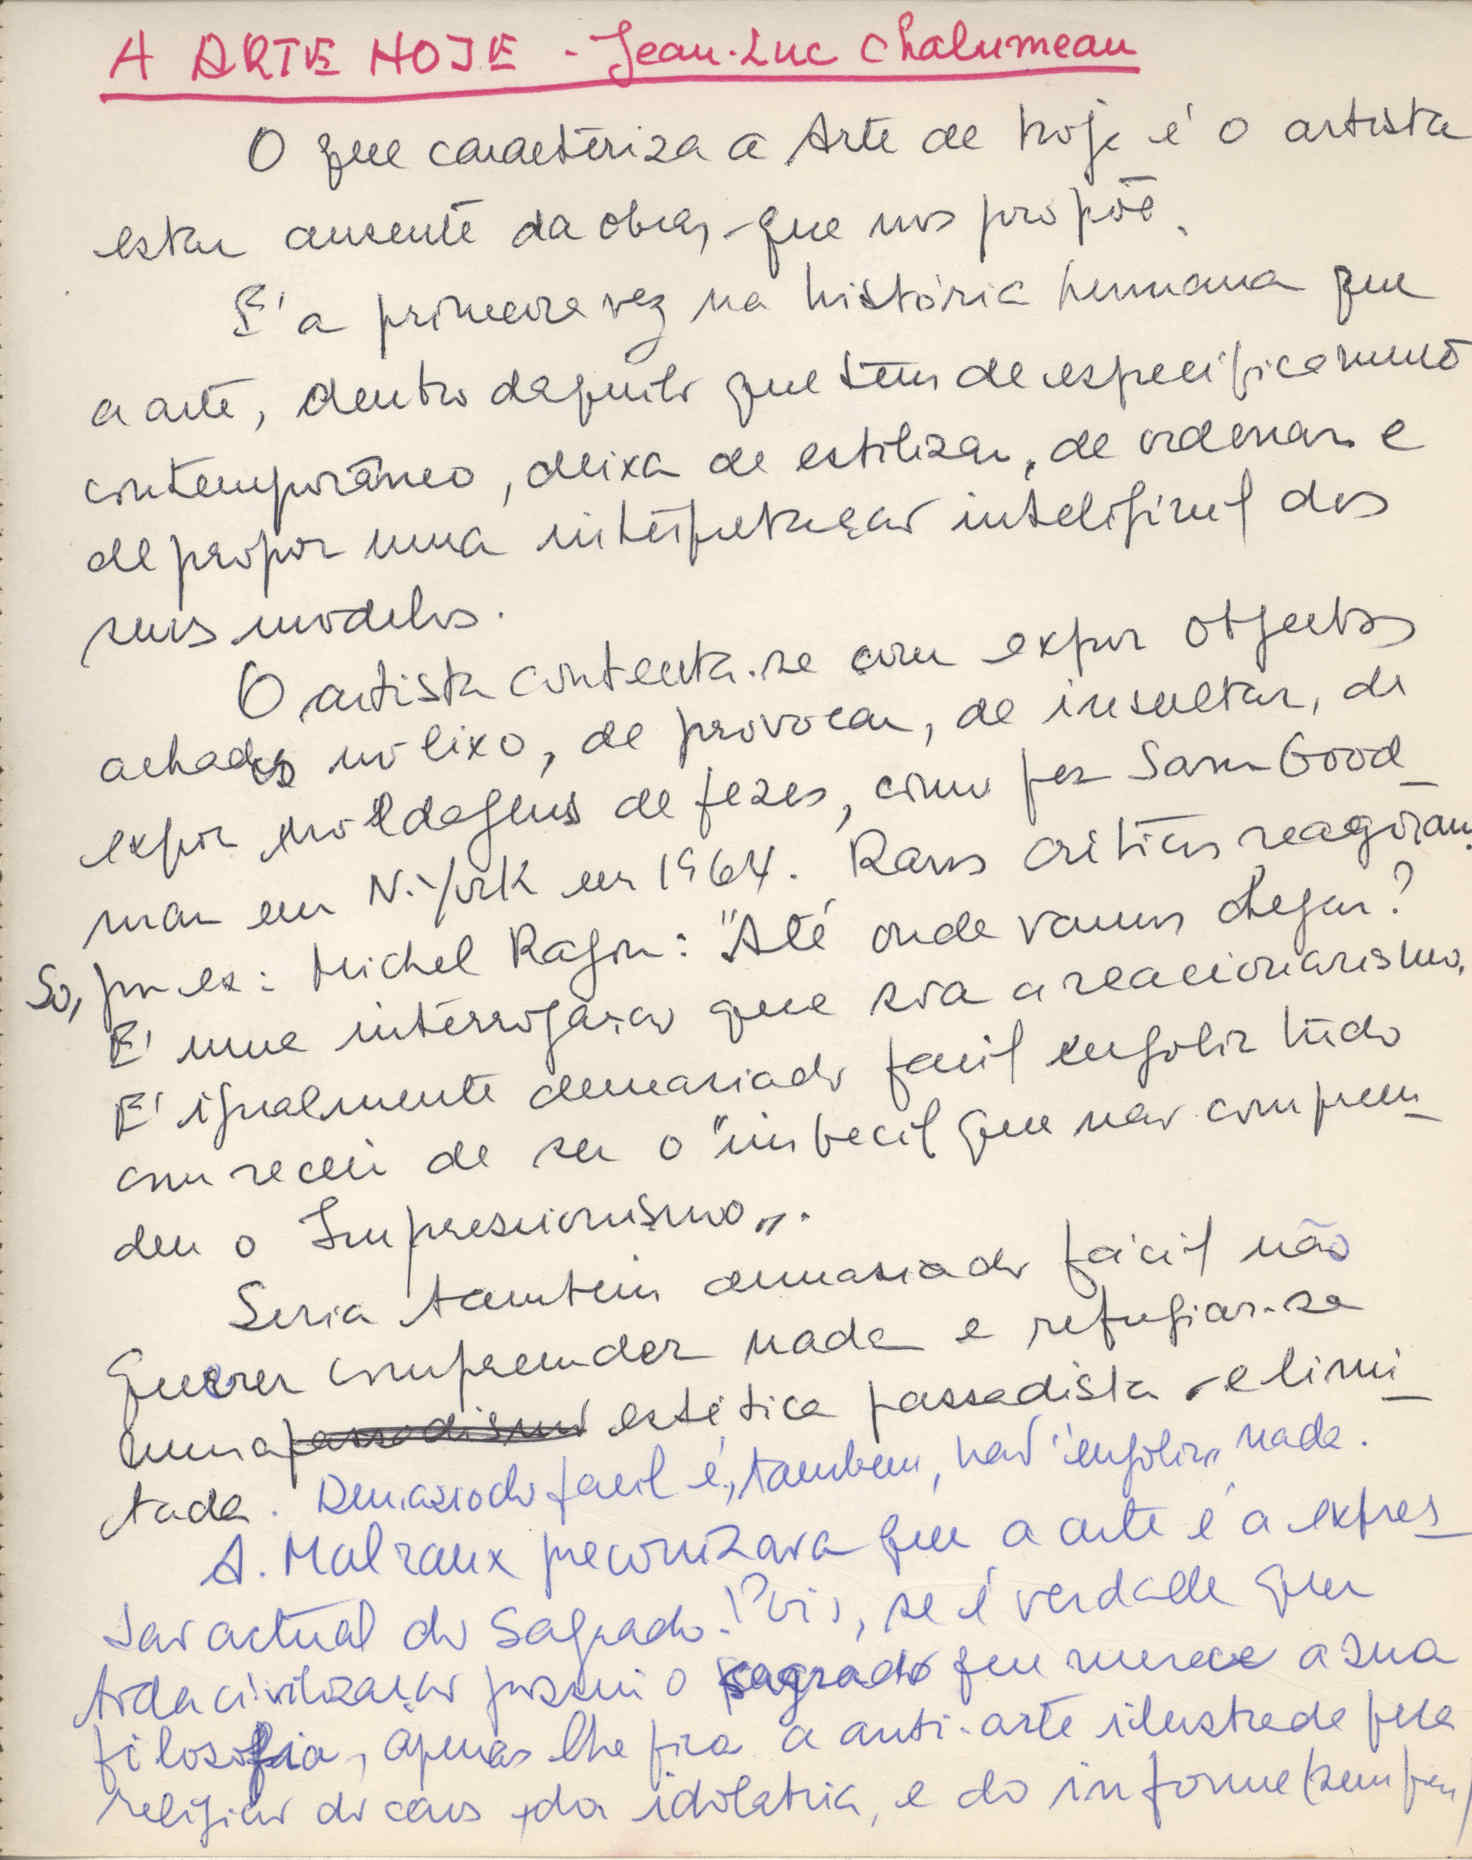 A ARTE HOJE - Jean-Luc Chalumeau
O que caracteriza a Arte de hoje é o artista
estar ausente da obra, que nos propõe.
E' a primeira vez na história humana que
a arte, dentro daquilo que tem de especificamente
contemporâneo, deixa de estilizar, de ordenar e
de propor uma interpretação inteligível dos
seus modelos.
O artista contenta-se com expor objectos
achados no lixo, de provocar, de insultar, de
expor moldagens de fezes, como fez Sam Good_
man em N. York em 1964. Raros críticos reagiram.
So, por ex: Michel Ragon: "Até onde vamos chegar?
E' uma interrogação que soa a reacionarismo.
E' igualmente demasiado facil engolir tudo
com receio de ser o "imbecil que não compreen_
deu o Impressionismo".
Seria também demasiado fácil não
querer compreender nada e refugiar-se
numa passadismo estética passadista e limi_
tada. Demasiado facil é, tambem, não "engolir" nada.
A. Malraux preconizava que a arte é a expres_
são actual do Sagrado. Pois, se é verdade que
toda civilização possui o sagrado que merece a sua
filosofia, apenas lhe fica a anti-arte ilustrada pela
religião do caos, da idolatria, e do informe (sem